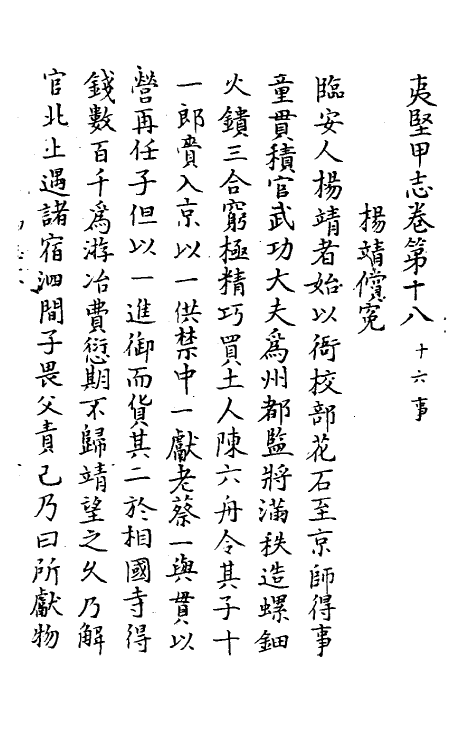 夷堅甲志卷第十八 十六事
楊靖償冤
臨安人楊靖者始以衙校部花石至京師得事
童貫積官武功大夫為州都監將滿秩造螺鈿
火鐀三合窮極精巧買土人陳六舟令其子十
一郎賫入京以一供禁中一獻老蔡一與貫以
營再任子但以一進御而貨其二於相國寺得
錢數百千為游冶費愆期不歸靖望之久乃解
官北上遇諸宿泗間子畏父責己乃曰所獻物